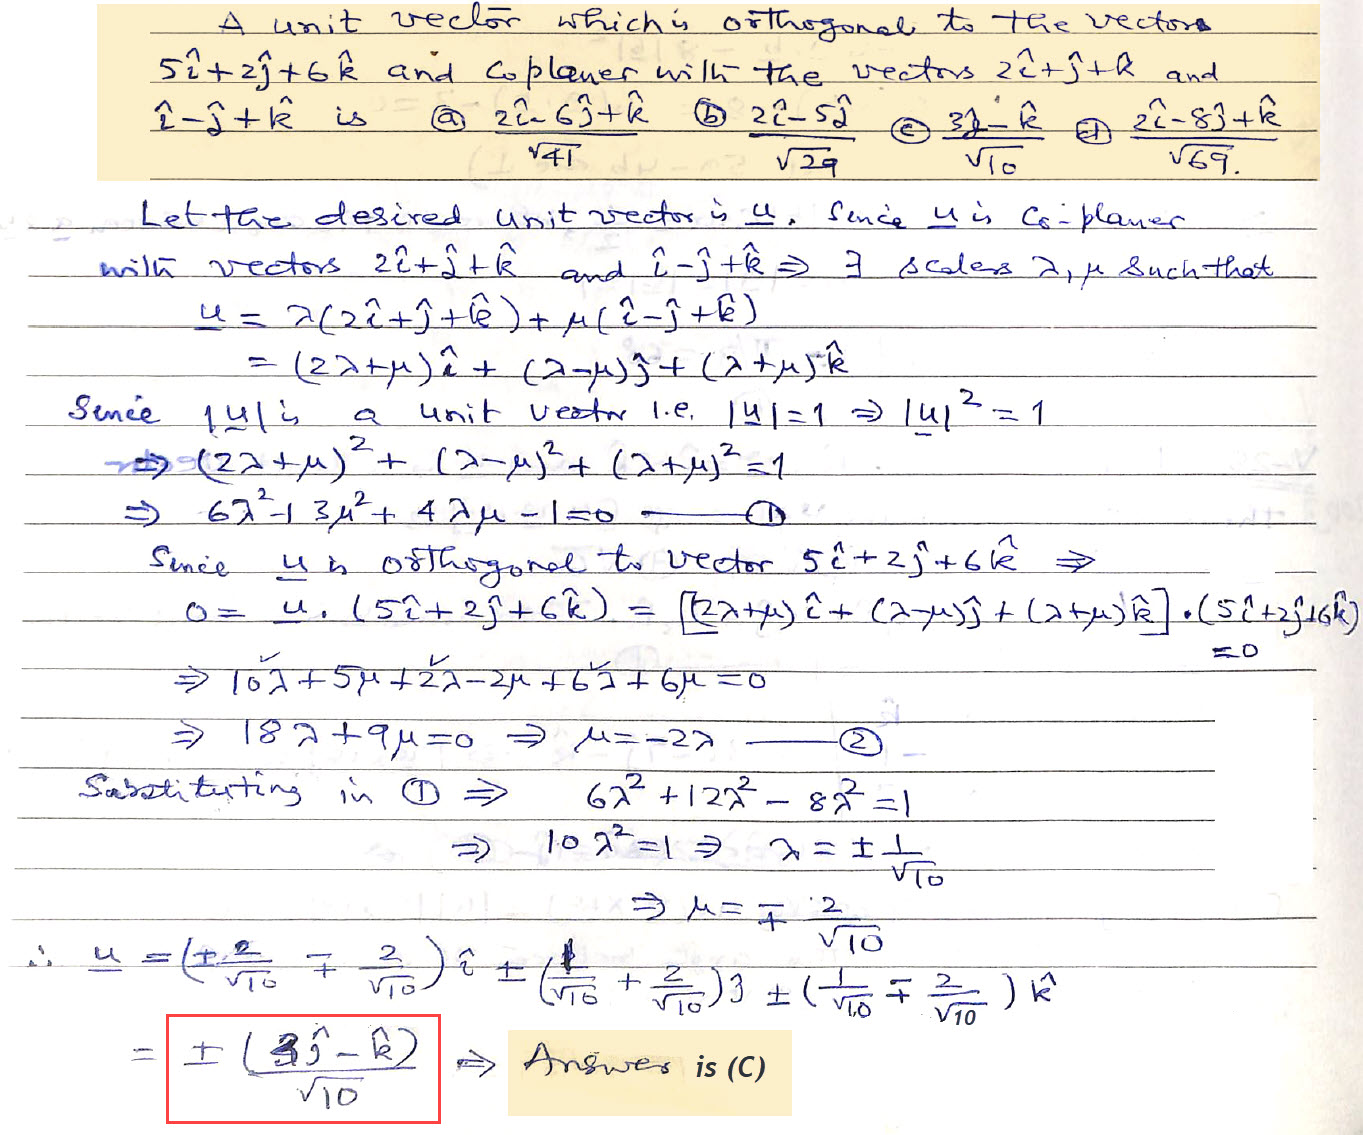 A unit vector which is orthogonal to the vectors
5î+2ĵ+6k̂ and Coplaner with the vectors 2î+ĵ+k̂ and
î-ĵ+k̂ is ⓐ (2î-6ĵ+k̂)/√41 ⓑ (2î-5ĵ)/√29 ⓒ (3ĵ-k̂)/√10 ⓓ (2î-8ĵ+k̂)/√69.
Let the desired unit vector is u. Since u is Co-planer
with vectors 2î+ĵ+k̂ and î-ĵ+k̂ ⇒ ∃ scalers λ, μ such that
u = λ(2î+ĵ+k̂)+μ(î-ĵ+k̂)
= (2λ+μ)î + (λ-μ)ĵ + (λ+μ)k̂
Since |u| is a unit vector i.e. |u|=1 ⇒ |u|² = 1
⇒ (2λ+μ)² + (λ-μ)² + (λ+μ)² = 1
⇒ 6λ²+3μ²+4λμ-1=0 —— ①
Since u is orthogonal to vector 5î+2ĵ+6k̂ ⇒
0 = u.(5î+2ĵ+6k̂) = [(2λ+μ)î+(λ-μ)ĵ+(λ+μ)k̂].(5î+2ĵ+6k̂)
=0
⇒ 10λ+5μ+2λ-2μ+6λ+6μ=0
⇒ 18λ+9μ=0 ⇒ μ=-2λ —— ②
Substituting in ① ⇒ 6λ²+12λ²-8λ²=1
⇒ 10λ²=1 ⇒ λ = ± 1/√10
⇒ μ = ∓ 2/√10
∴ u = (± 2/√10 ∓ 2/√10) î ± (1/√10 + 2/√10) ĵ ± (1/√10 ∓ 2/√10) k̂
= ± (3ĵ-k̂)/√10 ⇒ Answer is (C)